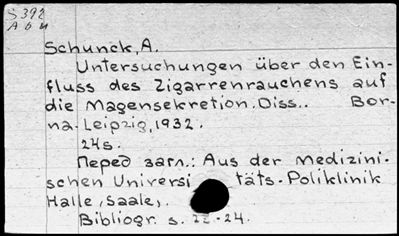 S 392
Schunck, A.
Untersuchungen über den Ein-
fluss des Zigarrenrauchens auf
die Magensekretion. Diss.. Bor-
na-Leipzig, 1932.
24s.
Перед загл.: Aus der Medizini-
schen Universi täts-Poliklinik
Halle, Saale,.
Bibliogr. s. -24.